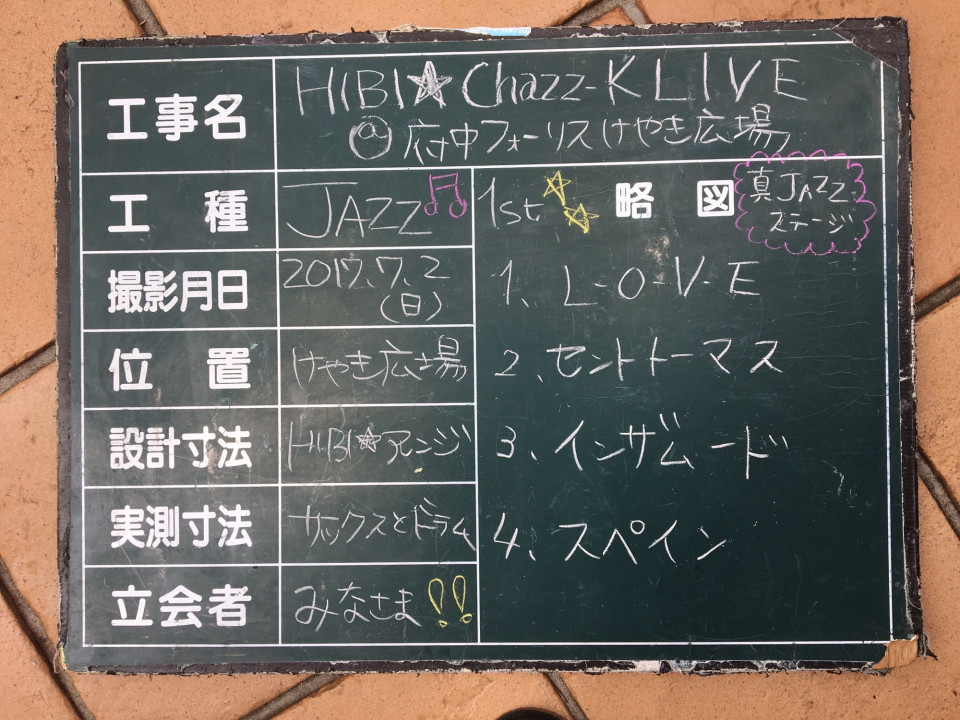 工事名 HIBI☆Chazz-K LIVE
@府中フォーリスけやき広場
工種 JAZZ♫
撮影月日 2017.7.2
(日)
位置 けやき広場
設計寸法 HIBI☆アレンジ
実測寸法 サックスとドラム
立会者 みなさま!!
1st☆☆ 略図
真JAZZ
ステージ
1、L-O-V-E
2、セントトーマス
3、インザムード
4、スペイン